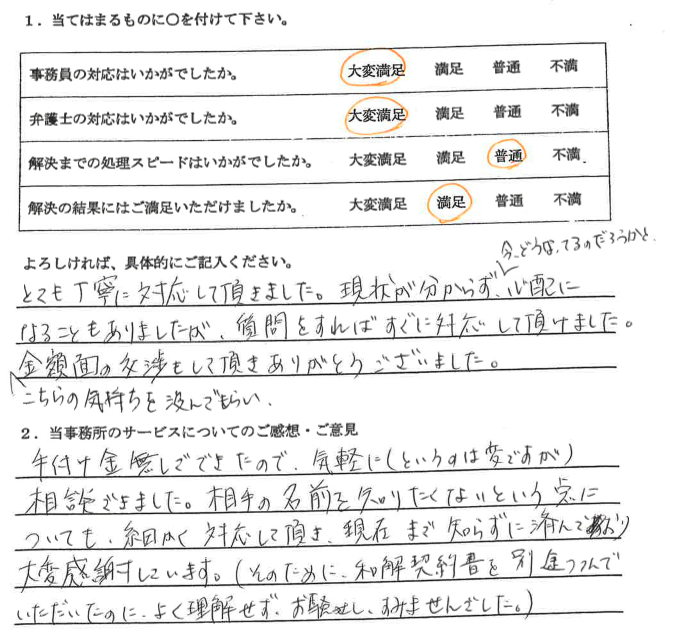 1．当てはまるものに○を付けて下さい。
事務員の対応はいかがでしたか。 大変満足 満足 普通 不満
弁護士の対応はいかがでしたか。 大変満足 満足 普通 不満
解決までの処理スピードはいかがでしたか。 大変満足 満足 普通 不満.
解決の結果にはご満足いただけましたか。 大変満足 満足 普通 不満
よろしければ、具体的にご記入ください。
今、どうなってるのだろうかと、
とても丁寧に対応して頂きました。現状が分からず、心配に
なることもありましたが、質問をすればすぐに対応して頂けました。
金額面の交渉もして頂きありがとうございました。
こちらの気持ちを汲んでもらい、
2．当事務所のサービスについてのご感想・ご意見
手付け金無しでできたので、気軽に(というのは変ですが)
相談できました。相手の名前を知りたくないという点に
ついても、細かく対応して頂き、現在まで知らずに済んでおり
大変感謝しています。(そのために、和解契約書を別途つつんで
いただいたのに、よく理解せず、お騒せし、すみませんでした。)